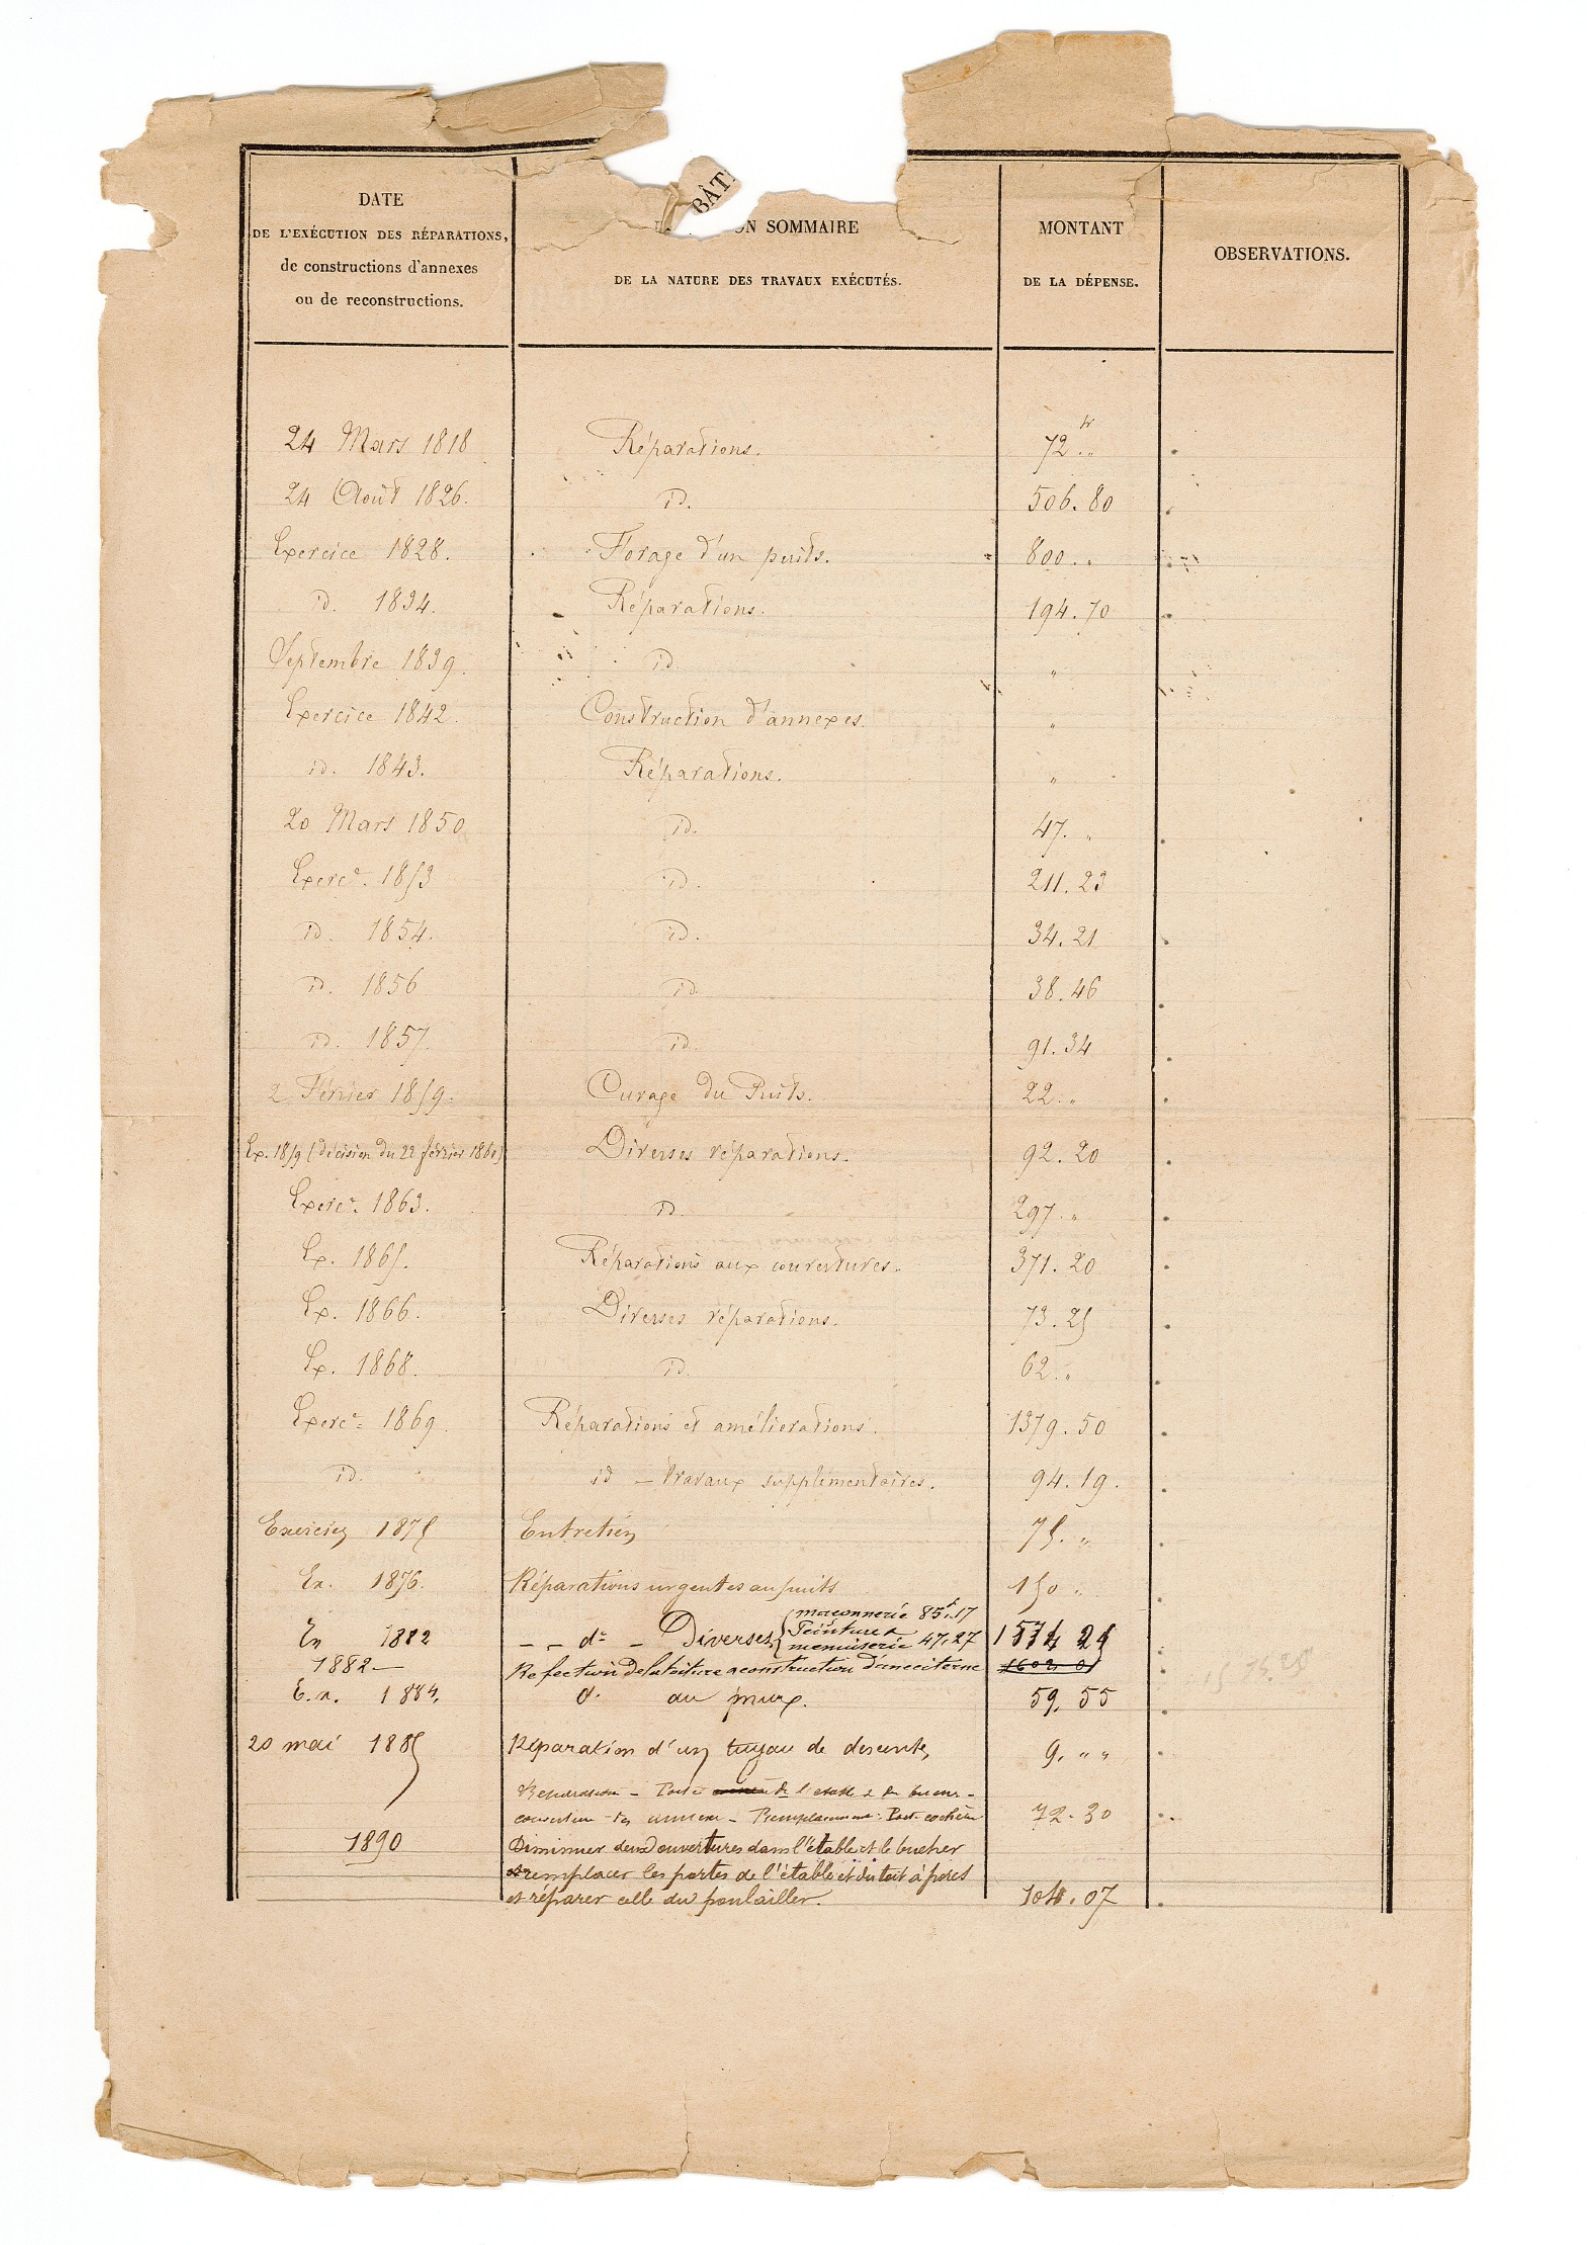 BÂT
DATE
DE L'EXÉCUTION DES RÉPARATIONS,
de constructions d'annexes
ou de reconstructions.
ON SOMMAIRE
DE LA NATURE DES TRAVAUX EXÉCUTÉS.
MONTANT
DE LA DÉPENSE.
OBSERVATIONS.
24 Mars 1818 Réparations. 72 "
24 Août 1826. id. 506.80
Exercice 1828. Forage d'un puits. 800. "
id. 1834. Réparations. 194.70
Septembre 1839. id. "
Exercice 1842. Construction d'annexes. "
id. 1843. Réparations. "
20 Mars 1850 id. 47. "
Exerce. 1853 id. 211.23
id. 1854. id. 34.21
id. 1856 id. 38.46
id. 1857. id. 91.34
2 Février 1859. Curage du Puits. 22. "
Ex. 1859 (décision du 22 février 1860) Diverses réparations. 92.20
Exerce. 1863. id. 297. "
Ex. 1865. Réparations aux couvertures. 371.20
Ex. 1866. Diverses réparations. 73.25
Ex. 1868. id. 62. "
Exerce. 1869. Réparations et améliorations. 1379.50
id. id – Travaux supplémentaires. 94.19.
Exercice 1875 Entretien 75. "
Ex. 1876. Réparations urgentes au puits 150 "
maçonnerie 85f.17
Ex 1882 – – do – Diverses Peinture & 1574 25
menuiserie 47.27
1882 – Refection de la toiture & construction d'une citerne
E.x. 1884. do au murs. 59.55
20 mai 1885 Réparation d'un tuyau de descente, 9. " "
Porte de l'
72.30
1890 Diminuer deux ouvertures dans l'étable et le bucher
remplacer les portes de l'étable et du toit à porcs
et réparer celle du poulailler. 104.07